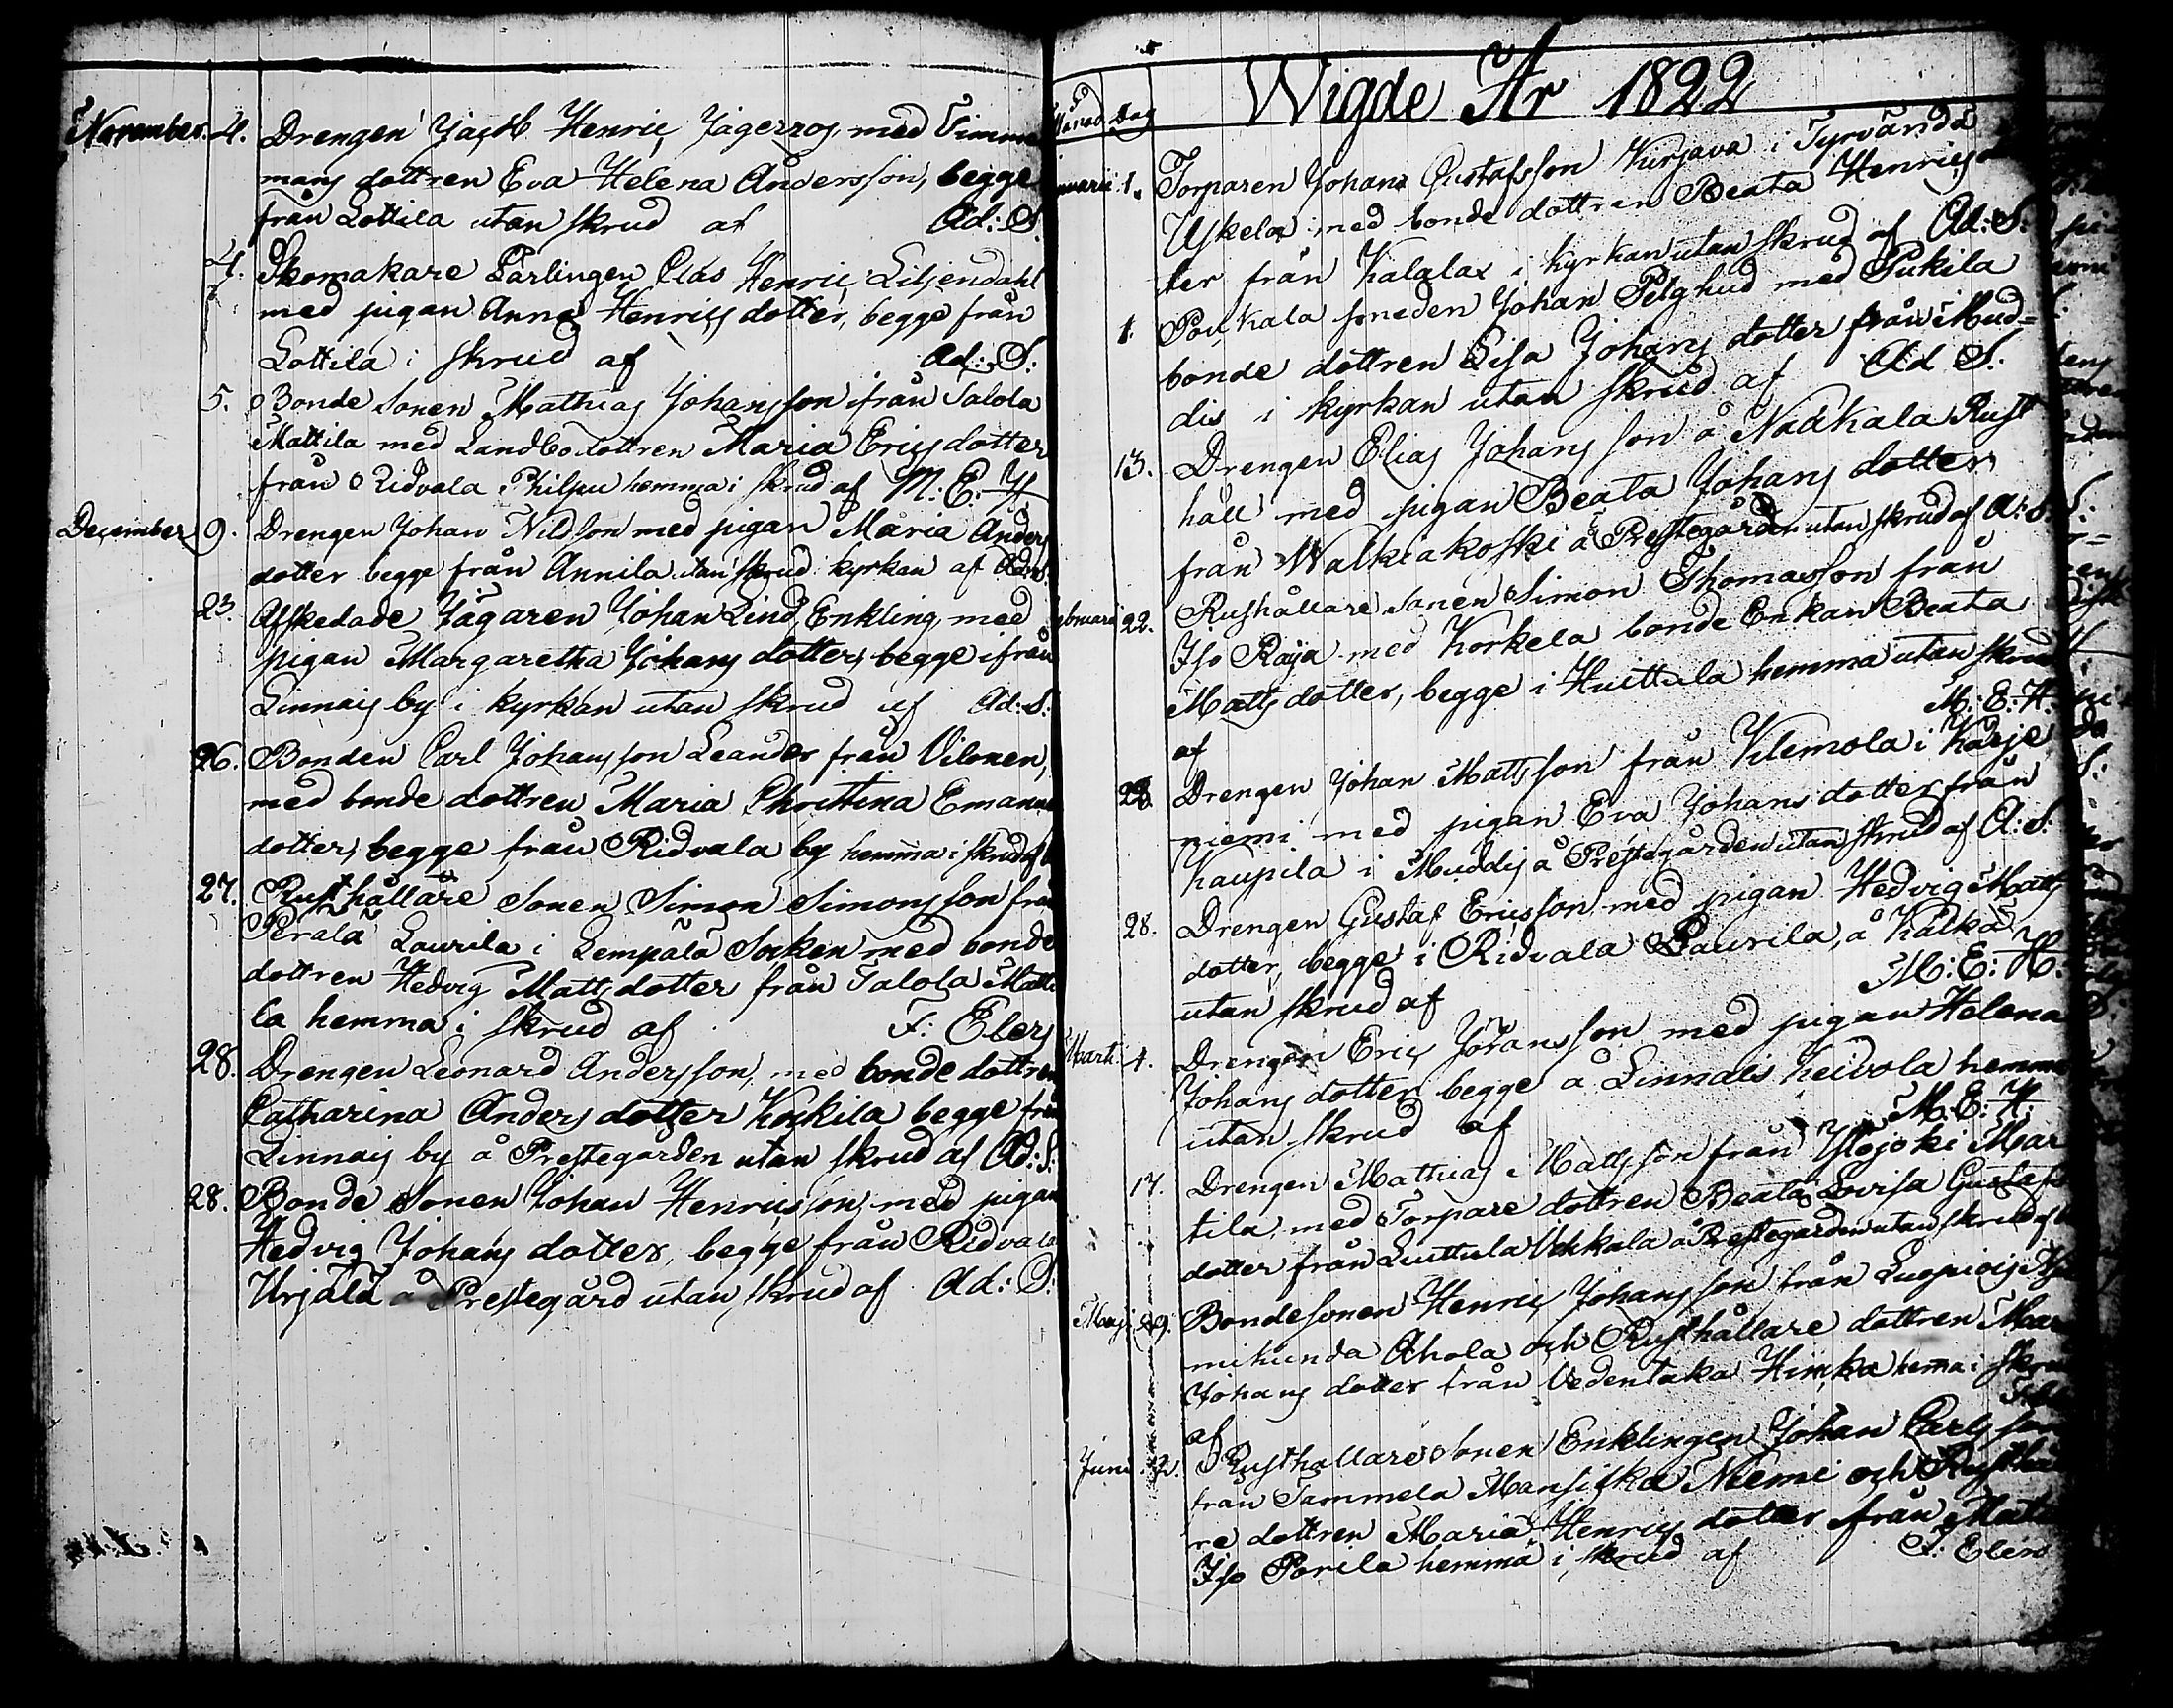 November. 4. Drengen Jacob Henric Jägerroos med Timmer
mans dottren Eva Helena Andersson, begge
från Lottila utan skrud af Ad: S.
4. Skomakare Lärlingen Clas Henric Liljendahl
med pigan Anna Henrics dotter, begge från
Lottila i skrud af Ad: S:
5. Bonde Sonen Mathias Johansson ifrån Salola
Mattila med Landbodottren Maria Erics dotter
från Ridvala Philpu hemma i skrud af M: E: H
December 9. Drengen Johan Nilsson med pigan Maria Anders
dotter begge från Annila utan skrud i kyrkan af Ad: S.
23. Afskedade Jägaren Johan Lind, Enkling, med
pigan Margaretha Johans dotter, begge ifrån
Linnais by i kyrkan utan skrud af Ad: S:
26. Bonden Carl Johansson Leander från Vilonen,
med bonde dottren Maria Christina Emanuels
dotter, begge från Ridvala by hemma i skrud af
27. Rusthållare Sonen Simon Simonsson från
Perälä Laurila i Lempälä Socken med bonde
dottren Hedvig Matts dotter från Salola Matti
la hemma i skrud af F: Elers
28. Drengen Leonard Andersson, med bonde dottren
Catharina Anders dotter Korkila begge från
Linnais by å Prestegården utan skrud af Ad: S:
28. Bonde Sonen Johan Henricsson, med pigan
Hedvig Johans dotter, begge från Ridvala
Urjälä å Prestegård utan skrud af Ad: S:
Wigde År 1822
Månad Dag
Januarii 1. Torparen Johan Gustafsson Kurjava i Tyrvändä
Uskela med bonde dottren Beata Henrics dot
ter från Kalalax i kyrkan utan skrud af Ad: S:
1. Smeden Johan Pelghud med Pukila
bonde dottren Lisa Johans dotter från Mud=
dis i kyrkan utan skrud af Ad S.
13. Drengen Elias Johansson å Nackala Rust
håll med pigan Beata Johans dotter
från Walkiakoski å Prestegården utan skrud af A: S.
Februarii 22. Rusthållare Sonen Simon Thomasson från
Iso Raija med Korkela bonde Enkan Beata
Matts dotter, begge i Huittula hemma utan skrud
af M: E: H.
28. Drengen Johan Mattsson från Klemola i Karje
niemi med pigan Eva Johans dotter från
Kaupila i Muddis å Prestegården utan skrud af A: S.
28. Drengen Gustaf Ericsson med pigan Hedvig Matts
dotter, begge i Ridvala Laurila, å Kälkä
utan skrud af M: E: H:
Marti 4. Drengen Eric Jöransson med pigan Helena
Johans dotter, begge å Linnais Heivola hemma
utan skrud af M: E: H.
17. Drengen Mathias Mattsson från Ylojoki Mar
tila, med Torpare dottren Beata Lovisa Gustafs
dotter från Luttula Uckala å Prestegården utan skrud af
Maji 29. Bondesonen Henric Johansson från Luopiois
mihunda Ahola och Rusthållare dottren Maria
Johans dotter från Vedentaka Hinka hemma i skrud
af
Juni 2. Rusthållare Sonen Enklingen Johan Carlsson
från Tammela Mansikka Niemi och Rusthålla
re dottren Maria Henrics dotter från
Iso Porila hemma i skrud af F: Elers